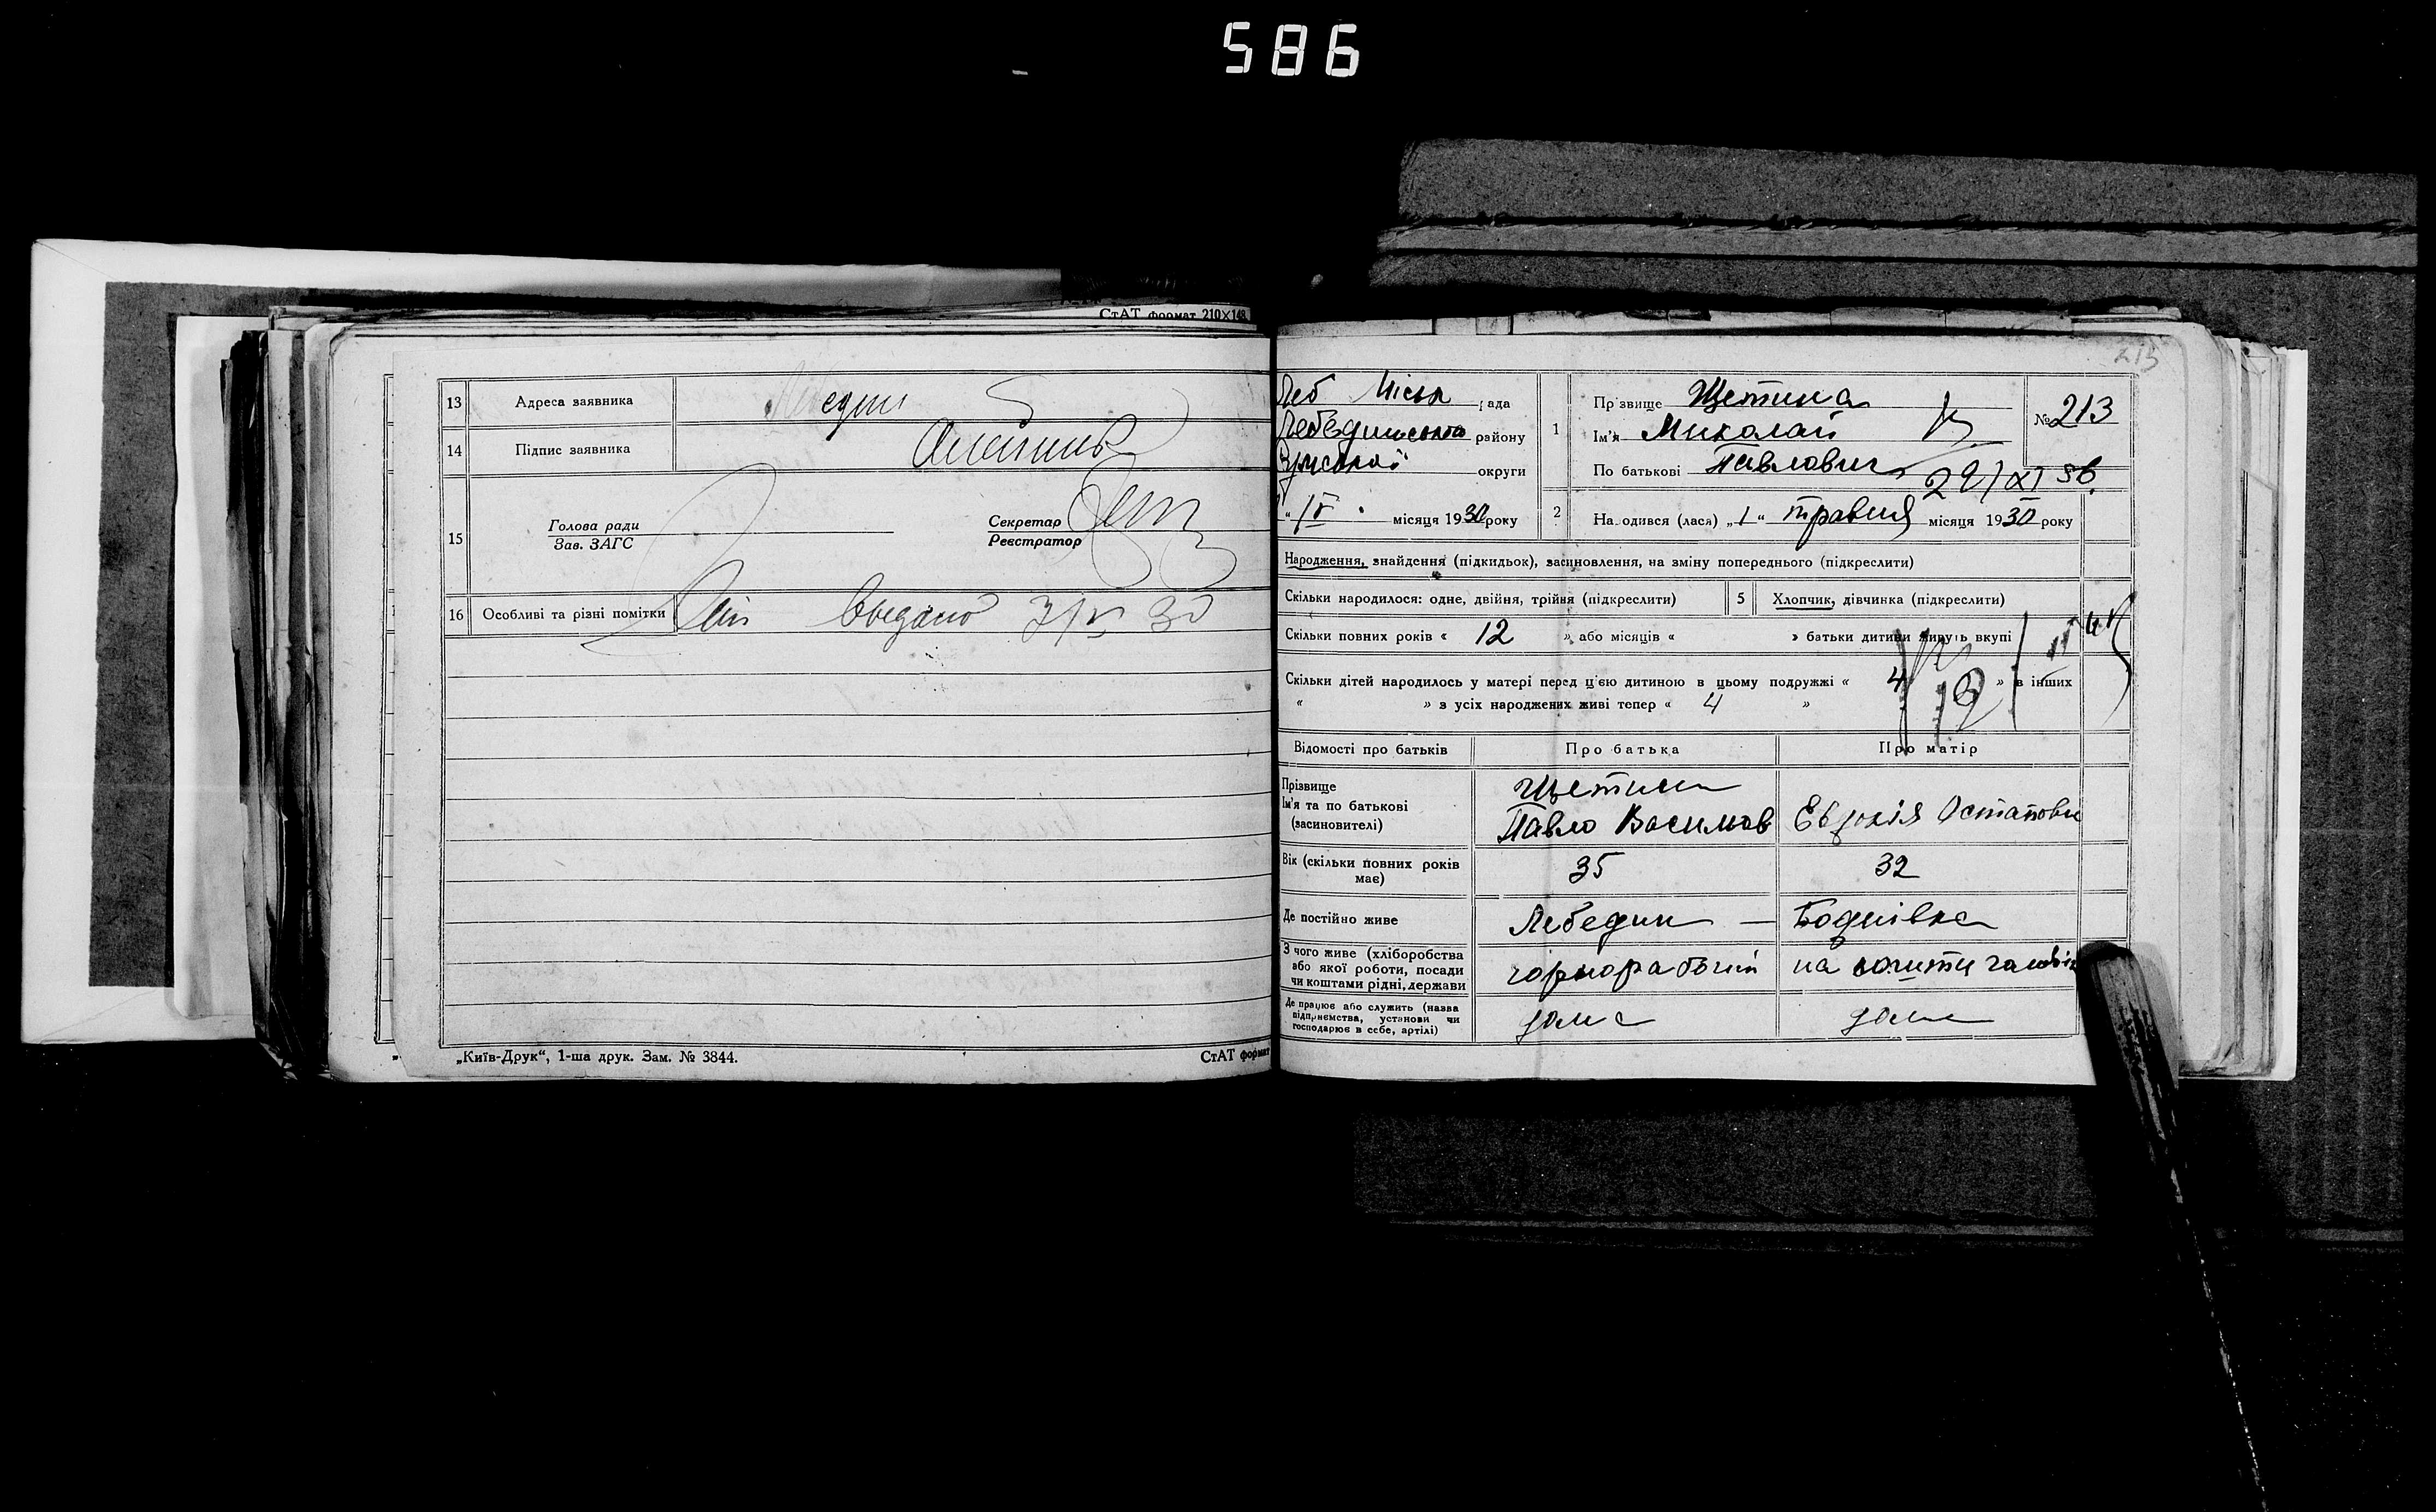 586
СтАТ формат 210×148
13 Адреса заявника Лебедин
14 Підпис заявника
15 Голова ради
Зав. ЗАГС
Секретар
Реєстратор
16 Особливі та різні помітки
„Київ-Друк“, 1-ша друк. Зам. № 3844.
СтАТ формат
213
Леб Міськ рада
Лебединського району
Сумської округи
місяця 1930 року
1 Прізвище Щетина
№ 213
Ім'я Миколай
По батькові Павлович
2 Народився (лася) „1“ травня місяця 1930 року
Народження, знайдення (підкидьок), засиновлення, на зміну попереднього (підкреслити)
Скільки народилося: одне, двійня, трійня (підкреслити)
5 Хлопчик, дівчинка (підкреслити)
Скільки повних років « 12 » або місяців « » батьки дитини живуть вкупі
Скільки дітей народилось у матері перед цією дитиною в цьому подружжі « 4 » в інших
« » з усіх народжених живі тепер « 4 »
Відомості про батьків Про батька Про матір
Прізвище
Ім'я та по батькові
(засиновителі)
Щетина
Павло Васильов Евдокія Остаповн
Вік (скільки повних років
має)
35 32
Де постійно живе Лебедин — Боднівка
З чого живе (хліборобства
або якої роботи, посади
чи коштами рідні, держави
чорноробочий на кошти чоловік
Де працює або служить (назва
підприємства, установи чи
господарює в себе, артілі)
дома дома